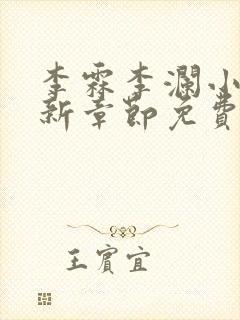 李霖李澜小
新章即免費
王賓宜